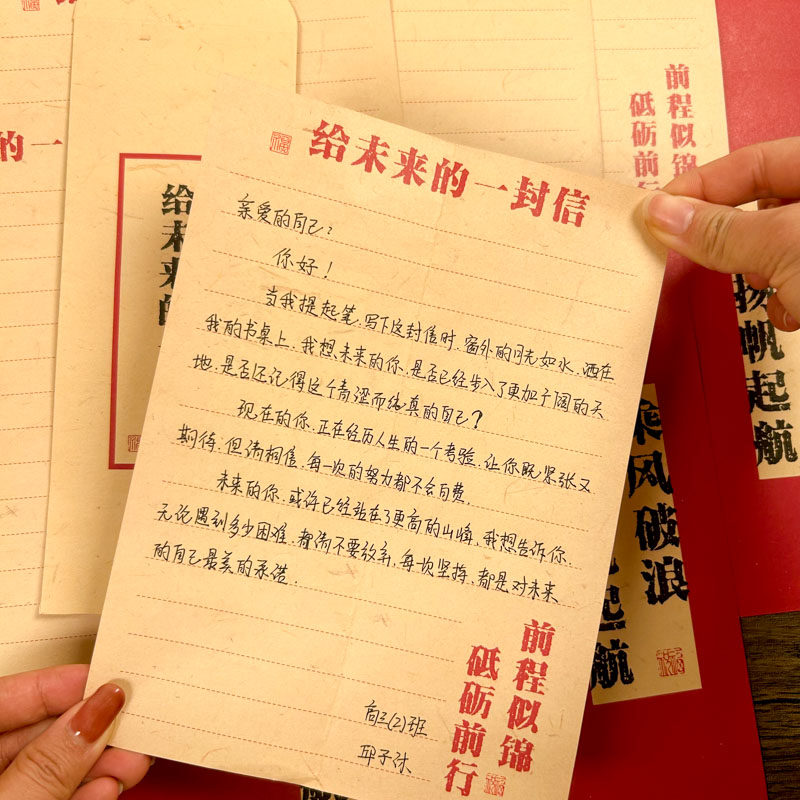 给未来的一封信
亲爱的自己:
你好!
当我提起笔,写下这封信时,窗外的月光如水,洒在
我的书桌上,我想未来的你,是否已经步入了更加广阔的天
地,是否还记得这个青涩而纯真的自己?
现在的你,正在经历人生的一个考验,让你既紧张又
期待,但请相信,每一次的努力都不会白费.
未来的你,或许已经站在了更高的山峰,我想告诉你,
无论遇到多少困难,都请不要放弃,每次坚持,都是对未来
的自己最美的承诺.
高三(2)班
邱子沐
前程似锦
砥砺前行
给未来的
的一
前程似锦
砥砺前行
扬帆起航
乘风破浪
起航